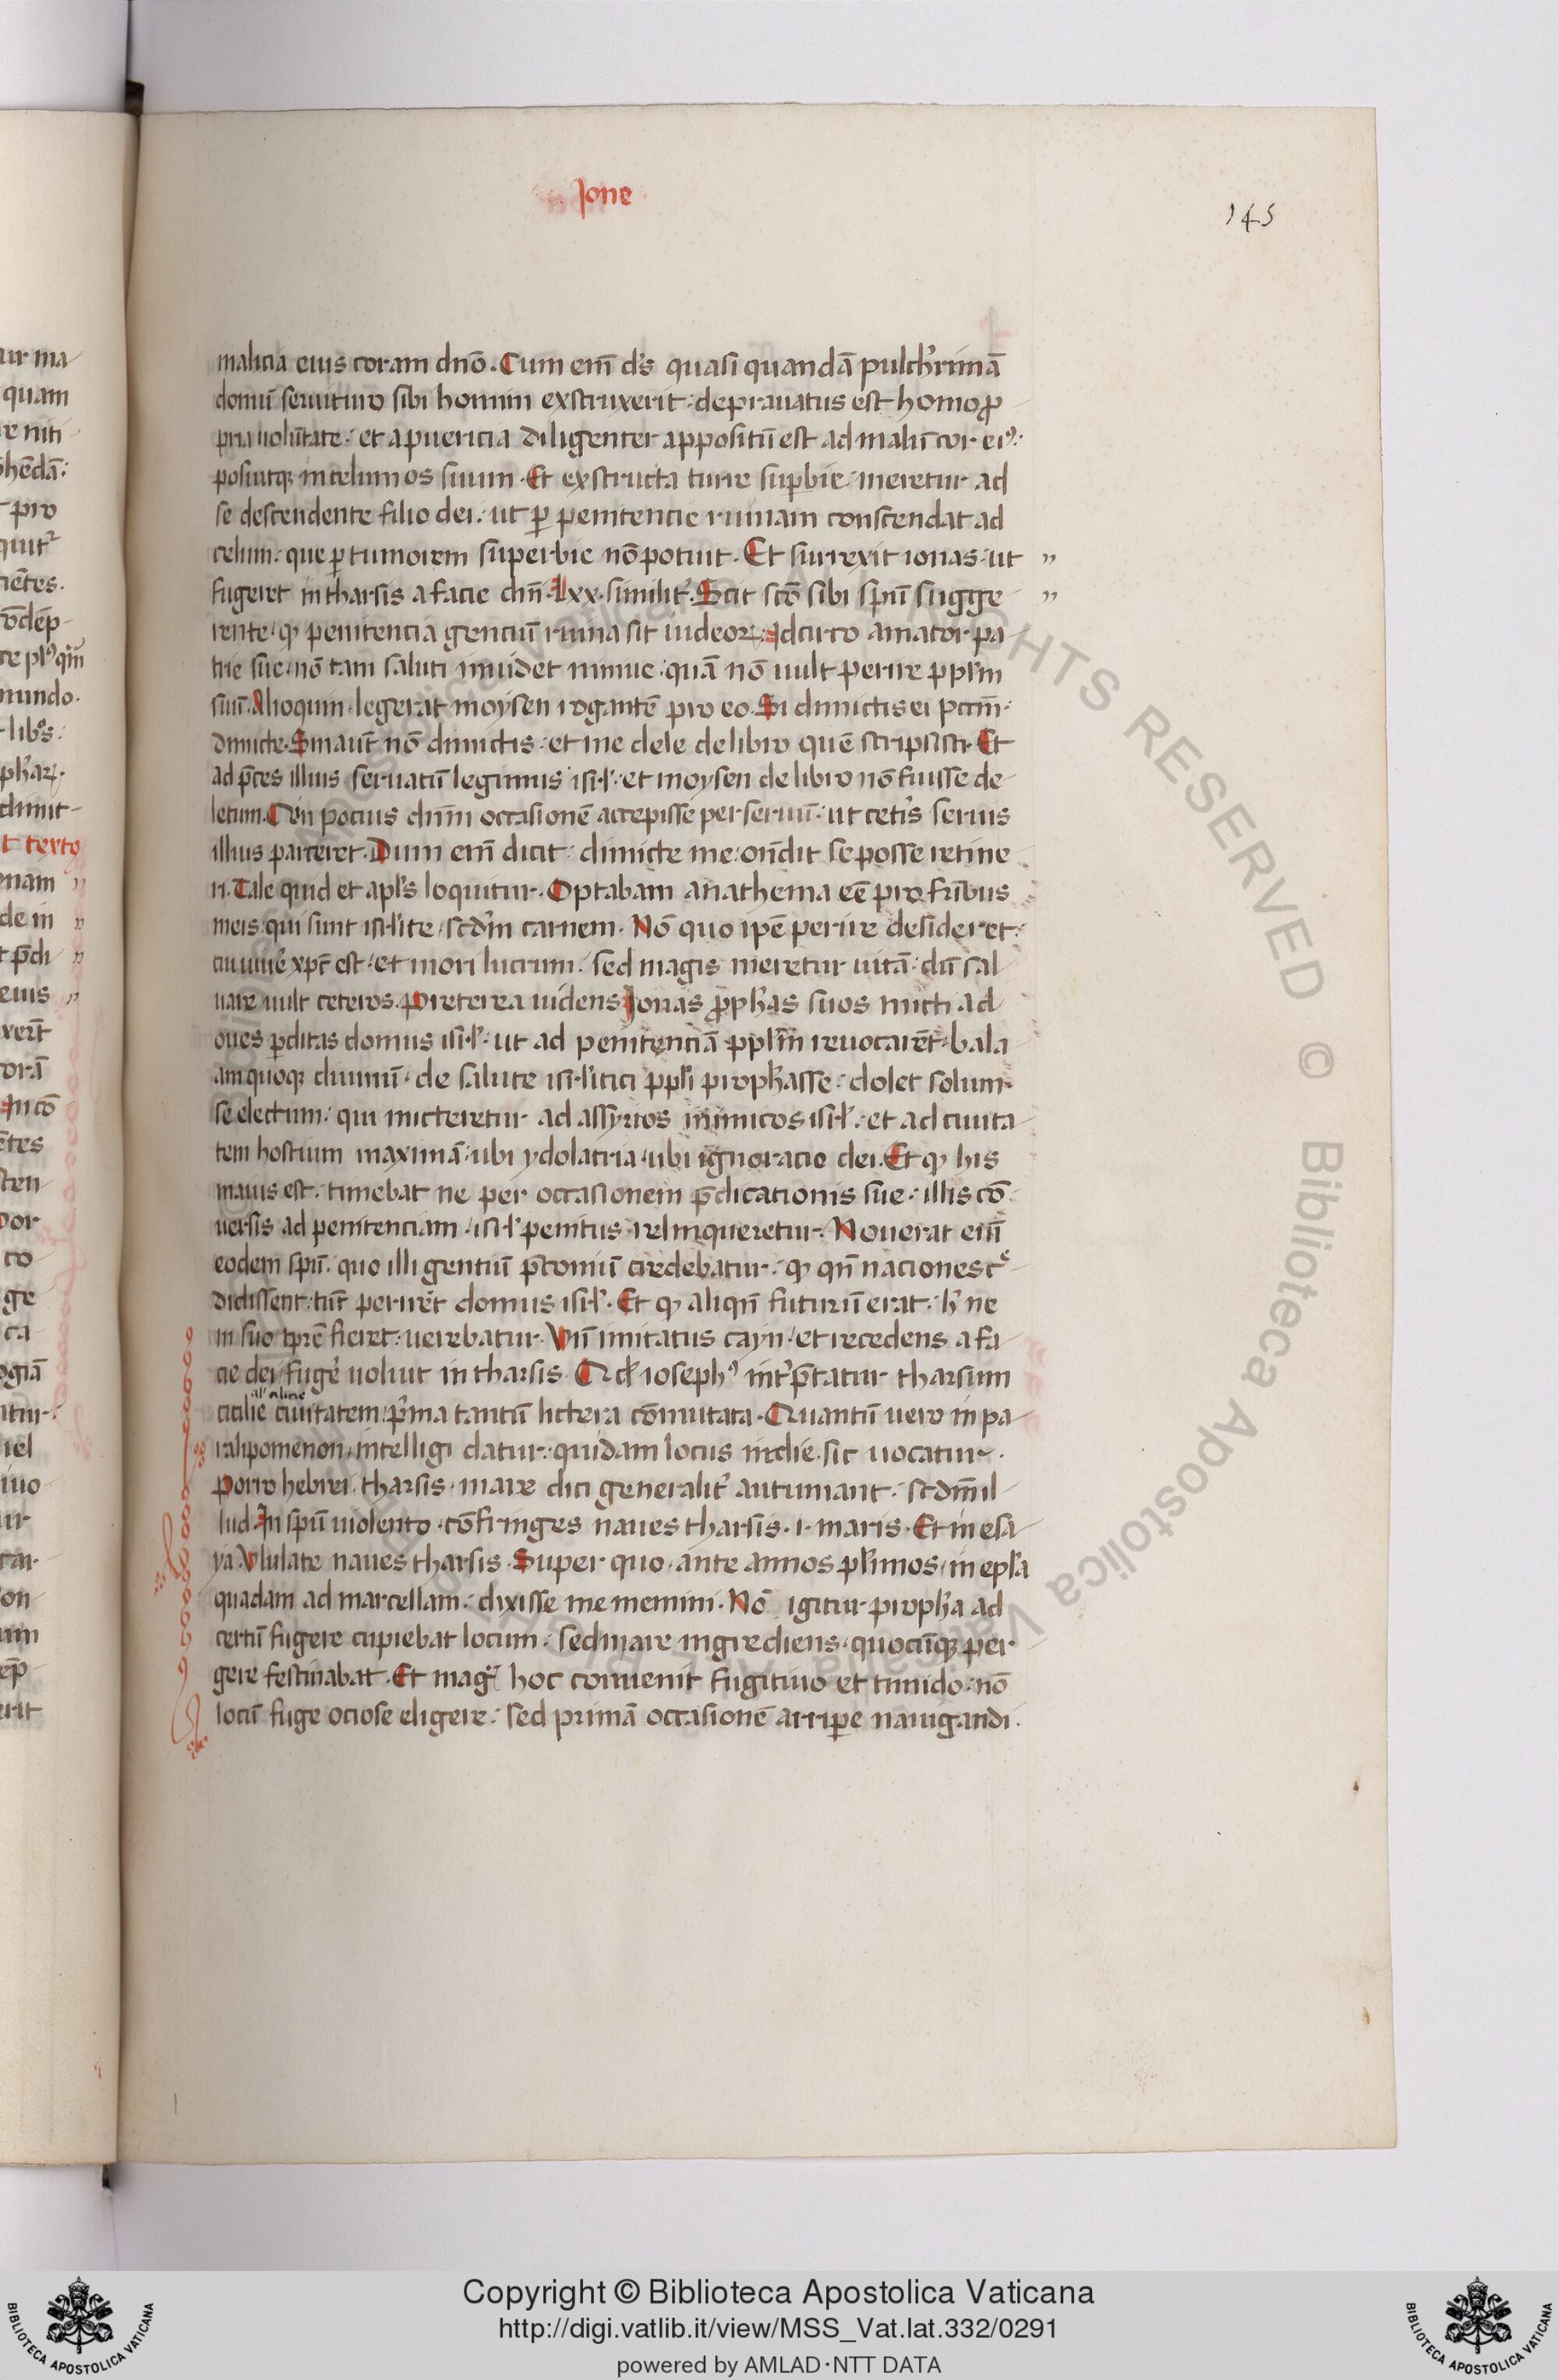 Ione
145
malicia eius coram dnō. Cum enī ds̄ quasi quandā pulch̓rimā
domū seruituro sibi homini exstruxerit: deprauatus est homo ꝓ
pria uolūtate: et a puericia diligenter appositū est ad malū cor eiꝰ:
posuitqꝫ in celum os suum. Et exstructa turre suꝑbie: meretur ad
se descendente filio dei: ut ꝑ penitencie ruinam conscendat ad
celum: que ꝑ tumorem superbie nō potuit. Et surrexit ionas: ut
fugeret in tharsis a facie dn̄i. Lxx. similit̓. Scit sc̄o sibi sp̄u sugge
rente: ꝙ penitencia genciū ruina sit iudeoꝝ. Idcirco amator pa
trie sue: nō tam saluti inuidet niniue: quā nō uult perire ppl̄m
suū. Alioquin legerat moysen rogantē pro eo. Si dimictis ei pccm̄:
dimicte. Sin aut̄ nō dimictis: et me dele de libro quē scripsisti. Et
ad p̄ces illius seruatū legimus isrl̓: et moysen de libro nō fuisse de
letum. Qn̄ pocius dn̄m occasionē accepisse per seruū: ut cetis̓ seruis
illius parceret. Dum enī dicit: dimicte me: on̄dit se posse retine
ri. Tale quid et apls̄ loquitur. Optabam anathema eē̄ pro frībus
meis: qui sunt isrl̓ite sc̄dm carnem. Nō quo ipē perire desideret:
cui uiuē xp̄c est: et mori lucrum: sed magis meretur uitā: dū sal
uare uult ceteros. Preterea uidens Ionas ꝓph̄as suos micti ad
oues ꝑditas domus isrl̓: ut ad penitenciā ppl̄m reuocarēt: bala
am quoqꝫ diuinū: de salute isrl̓itici ppl̄i proph̄asse: dolet solum
se electum: qui micteretur ad assyrios inimicos isrl̓: et ad ciuita
tem hostium maximā: ubi ydolatria: ubi ignoracio dei. Et ꝙ his
maius est: timebat ne per occasionem p̄dicationis sue: illis cō
uersis ad penitenciam: isrl̓ penitus relinqueretur. Nouerat enī
eodem sp̄u: quo illi gentiū p̄conium credebatur: ꝙ qn̄ naciones c̓
didissent: tūc periret domus isrl̓. Et ꝙ aliqn̄ futurū erat: h̓ ne
in suo tp̄re fieret: uerebatur. Vn̄ imitatus cayn: et recedens a fa
cie dei: fuge̓ uoluit in tharsis. Qd̓ iosephꝰ int̓p̄tatur tharsum
cicilie ciuitatem: p̓ma tantū lictera cōmutata. Quantū uero in pa
ralipomenon intelligi datur: quidam locus indie sic uocatur.
Porro hebrei: tharsis: mare dici generalit̓ autumant: sc̄dm il
lud. In sp̄u uiolento: confringes naues tharsis. i. maris. Et in esa
ya. Vlulate naues tharsis. Super quo: ante annos pl̓imos: in epl̓a
quadam ad marcellam: dixisse me memini. Nō igitur proph̄a ad
certū fugere cupiebat locum: sed mare ingrediens: quocūqꝫ per
gere festinabat. Et mag̓ hoc conuenit fugitiuo et timido: nō
locū fuge ociose eligere: sed primā occasionē arriꝑe nauigandi.
Copyright © Biblioteca Apostolica Vaticana
http://digi.vatlib.it/view/MSS_Vat.lat.332/0291
powered by AMLAD·NTT DATA